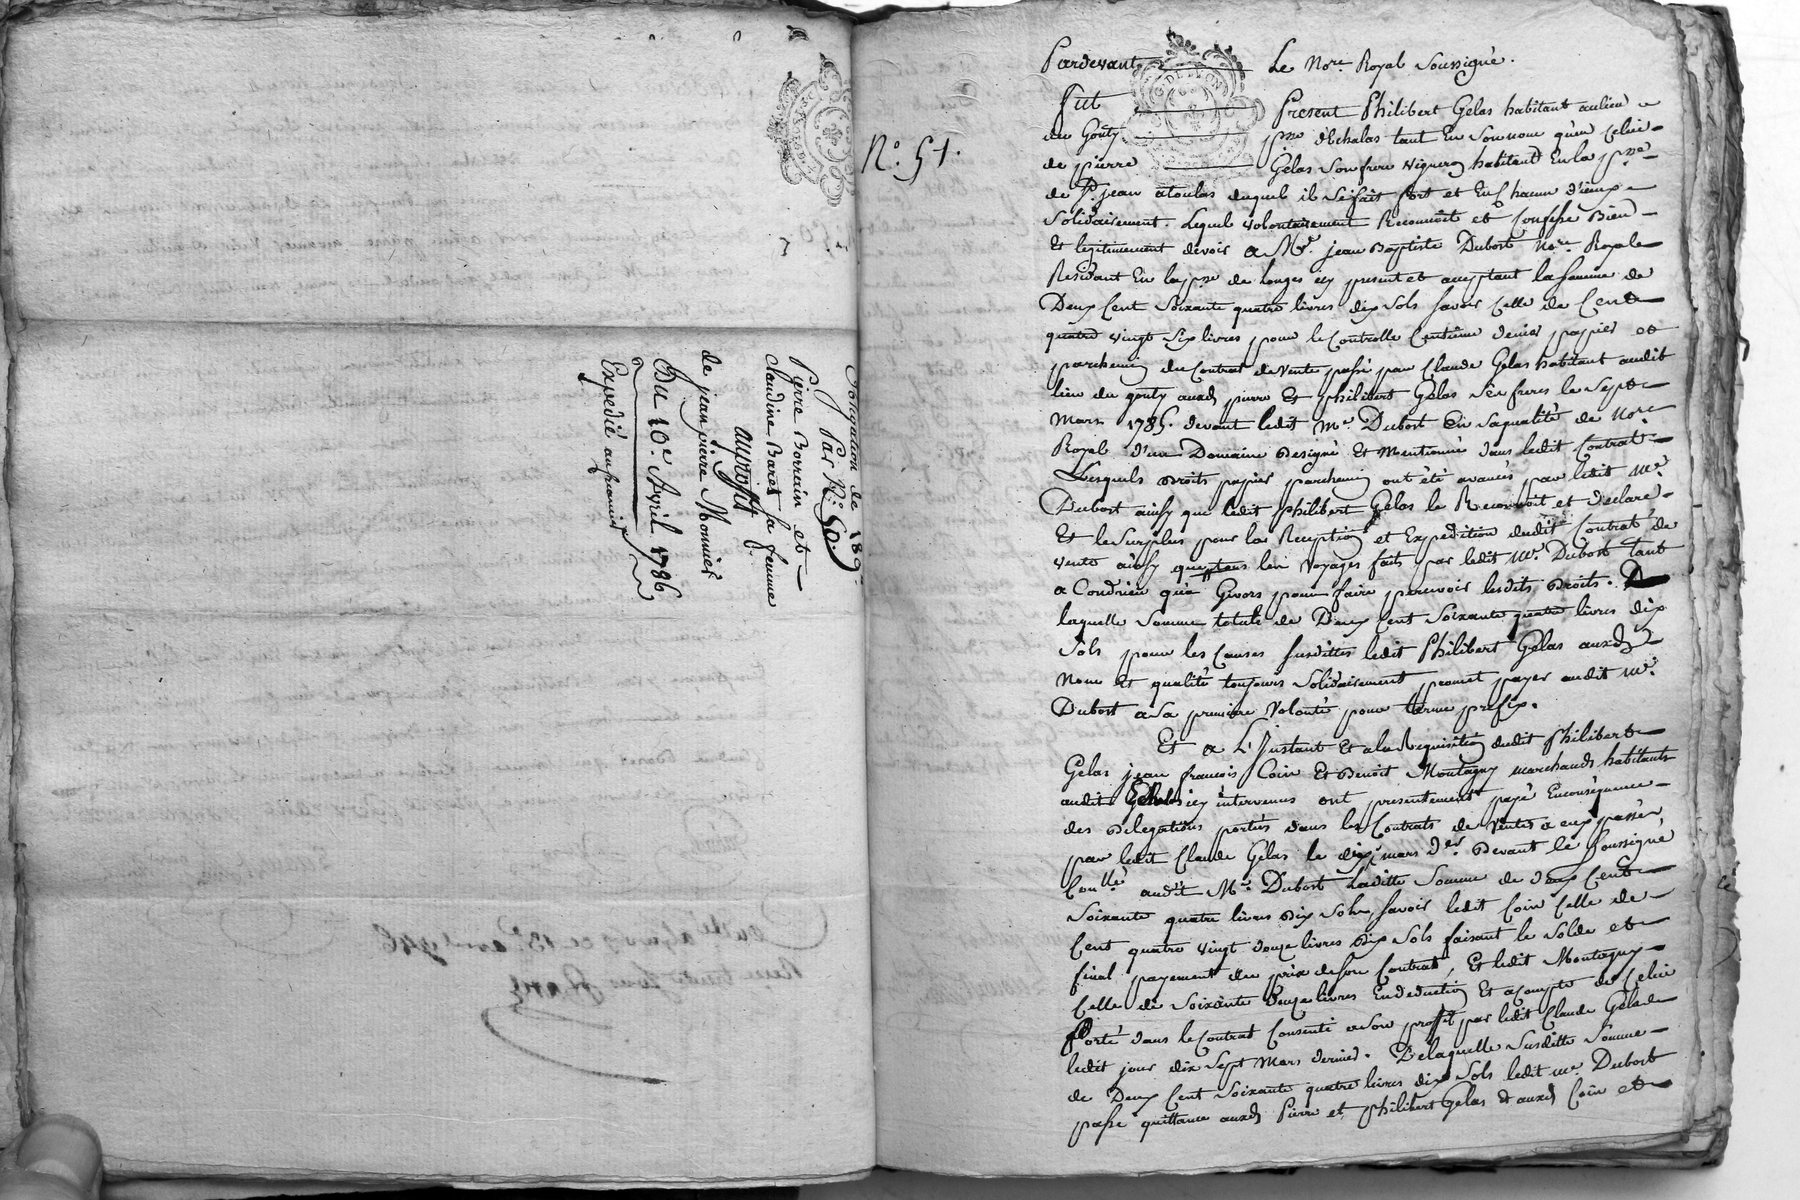 Jonquilon de 189#
Par N.° 50.
Pierre Borrain et
Claudine Baret sa femme
au profit
de jean pierre Monnier
Du 10e. Avril 1786
Expedié au premier
N.° 51.
Pardevant Le Nore. Royal Soussigné.
Fut Present Philibert Gelas habitant au lieu
du Gouty psse d'Echalas tant En Son nom qu'en Celui
de pierre Gelas Son frere vigneron habitant En la psse
de St. jean atoulas duquel il Se fait fort et En Chacun d'iceux
Solidairement. Lequel volontairement Reconnoit et Confesse Bien
Et legitimement devoir a Me. jean Baptiste Dubost Nore Royal
Residant En la psse de Longes icy present et acceptant la Somme de
Deux Cent Soixante quatre livres dix Sols Savoir Celle de Cent
quatre vingt Six livres pour le Controlle Centieme denier papier et
parchemin du Contrat de Vente passé par Claude Gelas habitant audit
lieu du gouty auxd. pierre Et philibert Gelas Ses freres le Sept
Mars 1785. devant ledit Me Dubost En Saqualité de Nore
Royal d'un Domaine Designé Et Mentionné dans ledit Contrat
Lesquels Droits papier parchemin ont été avancés par ledit Me.
Dubost ainsy que ledit philibert Gelas le Reconnoit et declare
Et le Surplus pour la Reception et Expedition dudit Contrat de
vente ainsy que tous les voyages faits par ledit Me. Dubost tant
a Condrieu qu'a Givors pour faire percevoir lesdits Droits.
laquelle Somme totale de Deux Cent Soixante quatre livres dix
Sols pour les Causes Susdittes ledit Philibert Gelas auxd.
Nom Et qualité toujours Solidairement promet payer audit Me.
Dubost a Sa premiere Volonté pour terme prefix.
Et a L'Instant Et a la Requisition dudit Philibert
Gelas jean francois Coin Et Benoit Montagny marchands habitants
audit Echalas icy intervenus ont presentement payé Enconséquence
des Delegations portées dans les Contrats de Ventes a eux passés
par ledit Claude Gelas le dix mars der. Devant le Soussigné
Conllé audit Me. Dubost Laditte Somme de deux Cent
Soixante quatre livres Dix Sols, Savoir ledit Coin Celle de
Cent quatre vingt douze livres Dix Sols faisant le Solde et
final payement du prix de Son Contrat, Et ledit Montagny
Celle de Soixante douze livres En deduction Et acompte de Celui
Porté dans le Contrat Consenti a Son profit par ledit Claude Gelas
ledit jour dix Sept Mars dernier. De laquelle Susditte Somme
de Deux Cent Soixante quatre livres dix Sols ledit Me. Dubost
passe quittance auxd. Pierre et philibert Gelas et auxd. Coin et